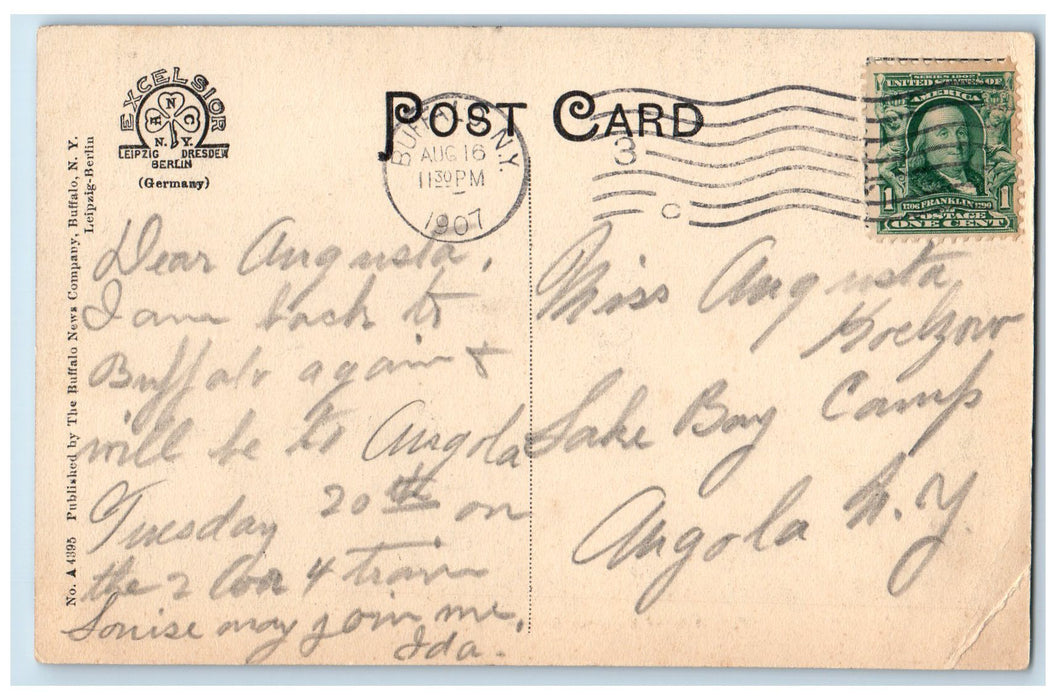 EXCELSIOR
A N C
N. Y.
LEIPZIG DRESDEN
BERLIN
(Germany)
POST CARD
BUFFALO, N.Y.
AUG 16
11 30 PM
1907
3
C
SERIES 1902
UNITED STATES OF
AMERICA
1 1
1706 FRANKLIN 1790
POSTAGE
ONE CENT
No. A 4395 Published by The Buffalo News Company, Buffalo, N. Y.
Leipzig-Berlin
Dear Augusta,
I am back to
Buffalo again &
will be to Angola
Tuesday 20th on
the 2 or 4 train
Louise may join me,
Ida.
Miss Augusta
Koelzow
Lake Bay Camp
Angola N.Y.